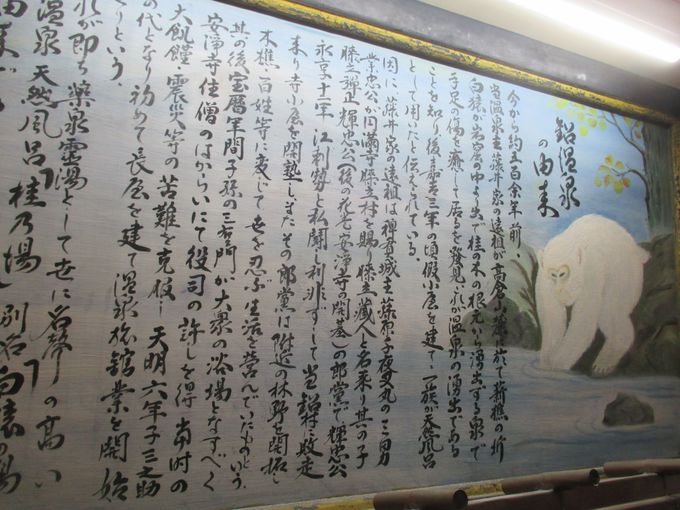 鉛温泉
の由来
今から約五百余年前
当温泉主藤井家の遠祖が高倉山麓に於て薪樵の折
白猿が岩窟の中より出で桂の木の根元から湧出する泉で
手足の傷を癒して居るを発見、これが温泉の湧出である
ことを知り後嘉吉三年の頃假小屋を建て、一族が天然風呂
として用いたと伝えられている。
因に藤井家の遠祖は
其の子
輝忠公
永享十一年 江刺勢と私闘し利非ずして当鉛村に敗走
来り寺小屋を開塾し、また その郎党は附近の林野を開拓し
木樵、百姓等に変じて世を忍ぶ生活を営んでいたものという。
其の後宝暦年間子孫の三右エ門が大衆の浴場となすべく
安浄寺住僧のはからいにて役司の許しを得 当時の
大飢饉、震災等の苦難を克服し 天明六年子三之助
の代となり初めて長屋を建て温泉旅館業を開始
たりという。
れが即ち薬泉霊湯として世に名声の高い
温泉 天然風呂「桂乃湯」別名白猿の湯
由来